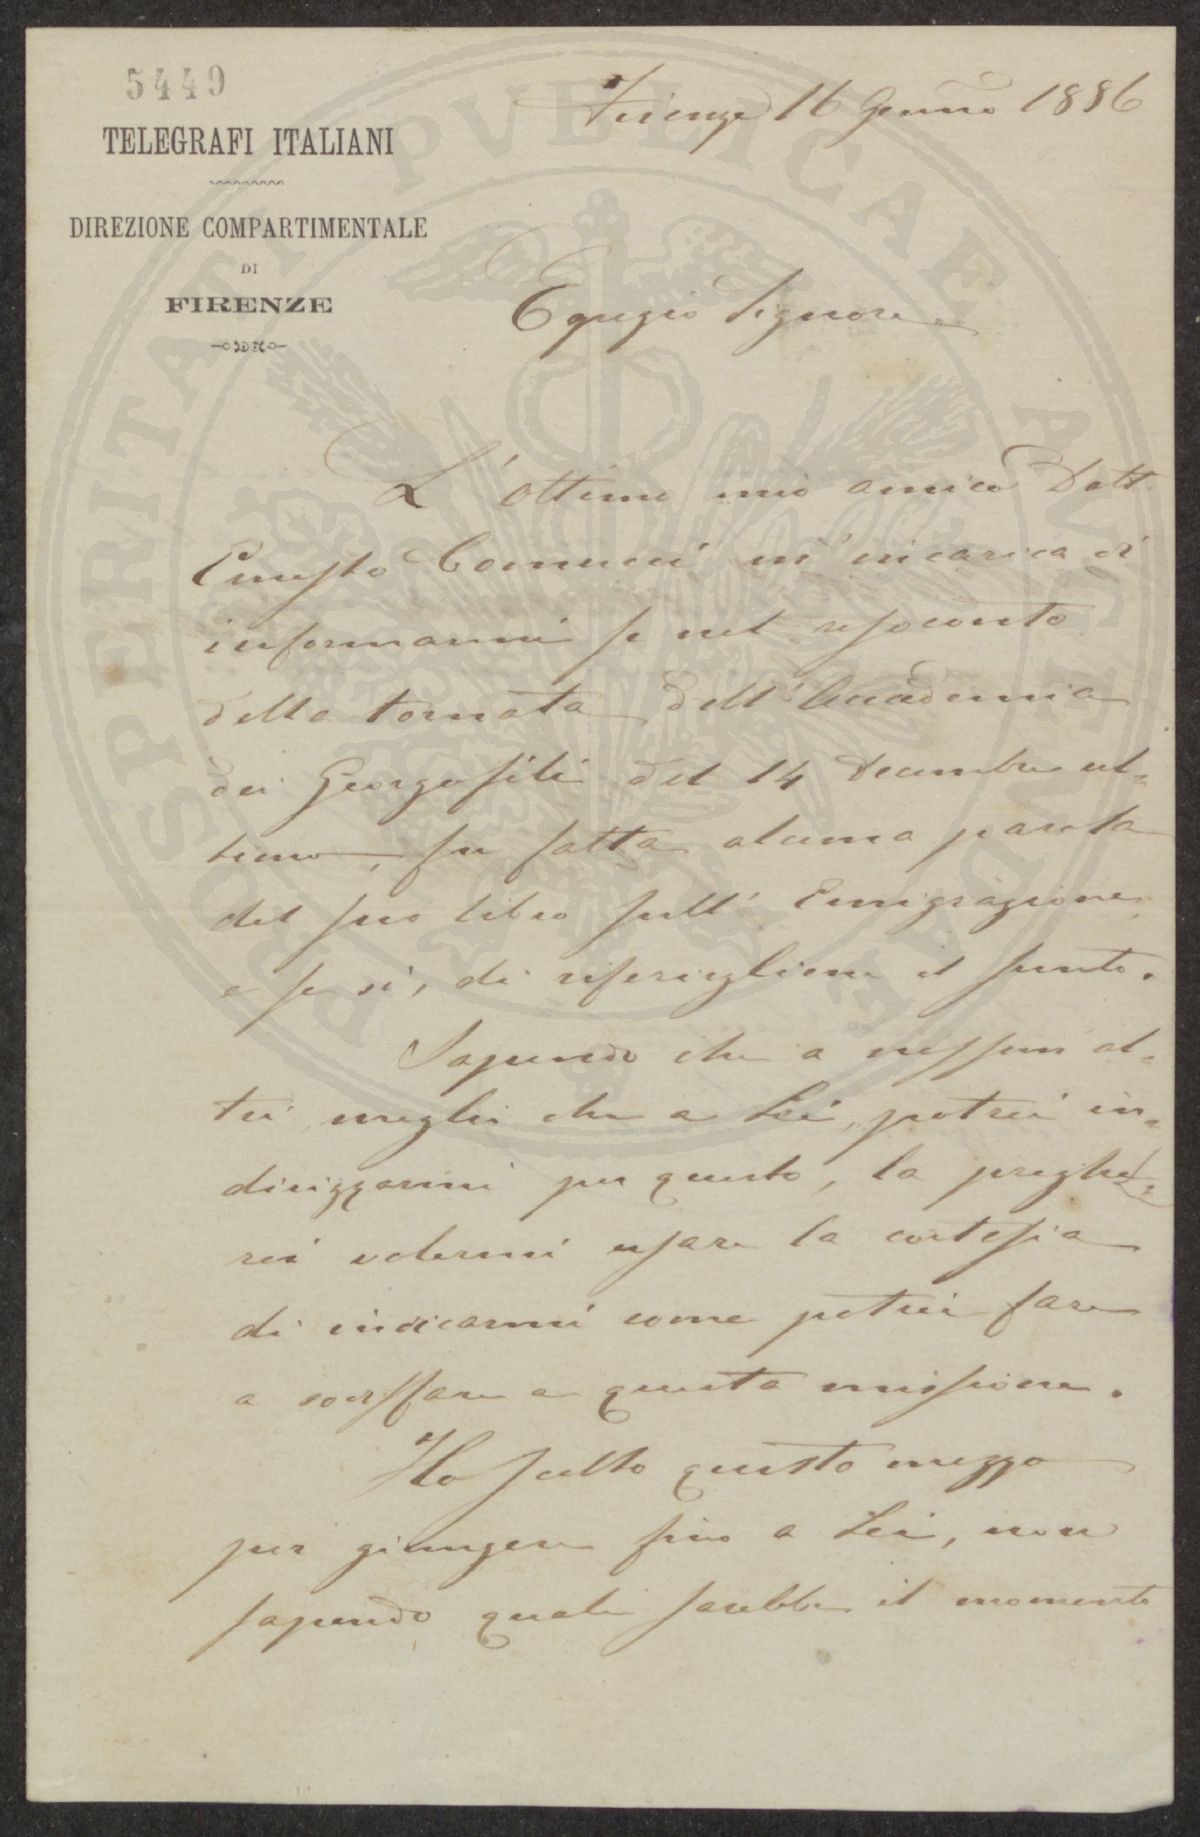 5449
TELEGRAFI ITALIANI
DIREZIONE COMPARTIMENTALE
DI
FIRENZE
Firenze 16 Genno 1886
Egregio Signore
L'ottimo mio amico Dott.
Ernesto Comucci m'incarica di
informarmi se nel resoconto
della tornata dell'Accademia
dei Georgofili del 14 Decembre ul=
timo, fu fatta alcuna parola
del suo libro sull'Emigrazione
e se sì, di riferirgliene il sunto.
Sapendo che a nessun al=
tri meglio che a Lei, potrei in=
dirizzarmi per questo, la preghe=
rei volermi usare la cortesia
di indicarmi come potrei fare
a sodisfare a questa missione.
Ho scelto questo mezzo
per giungere fino a Lei, non
sapendo quale sarebbe il momento
PROSPERITATI PVBLICAE AVGENDAE